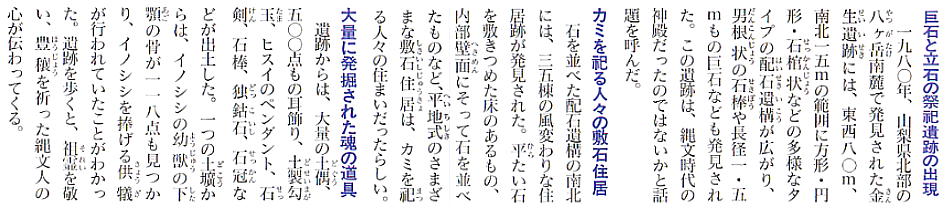 巨石と立石の祭祀遺跡の出現
一九八〇年、山梨県北部の
八ヶ岳南麓で発見された金
生遺跡には、東西八〇m、
南北一五mの範囲に方形・円
形・石棺状などの多様なタ
イプの配石遺構が広がり、
男根状の石棒や長径一・五
mもの巨石なども発見され
た。この遺跡は、縄文時代の
神殿だったのではないかと話
題を呼んだ。
カミを祀る人々の敷石住居
石を並べた配石遺構の南北
には、三五棟の風変わりな住
居跡が発見された。平たい石
を敷きつめた床のあるもの、
内部壁面にそって石を並べ
たものなど、平地式のさまざ
まな敷石住居は、カミを祀
る人々の住まいだったらしい。
大量に発掘された魂の道具
遺跡からは、大量の土偶、
五〇〇点もの耳飾り、土製勾
玉、ヒスイのペンダント、石
剣、石棒、独鈷石、石冠な
どが出土した。一つの土壙か
らは、イノシシの幼獣の下
顎の骨が一一八点も見つか
り、イノシシを捧げる供犠
が行われていたことがわかっ
た。遺跡を歩くと、祖霊を敬
い、豊穣を祈った縄文人の
心が伝わってくる。